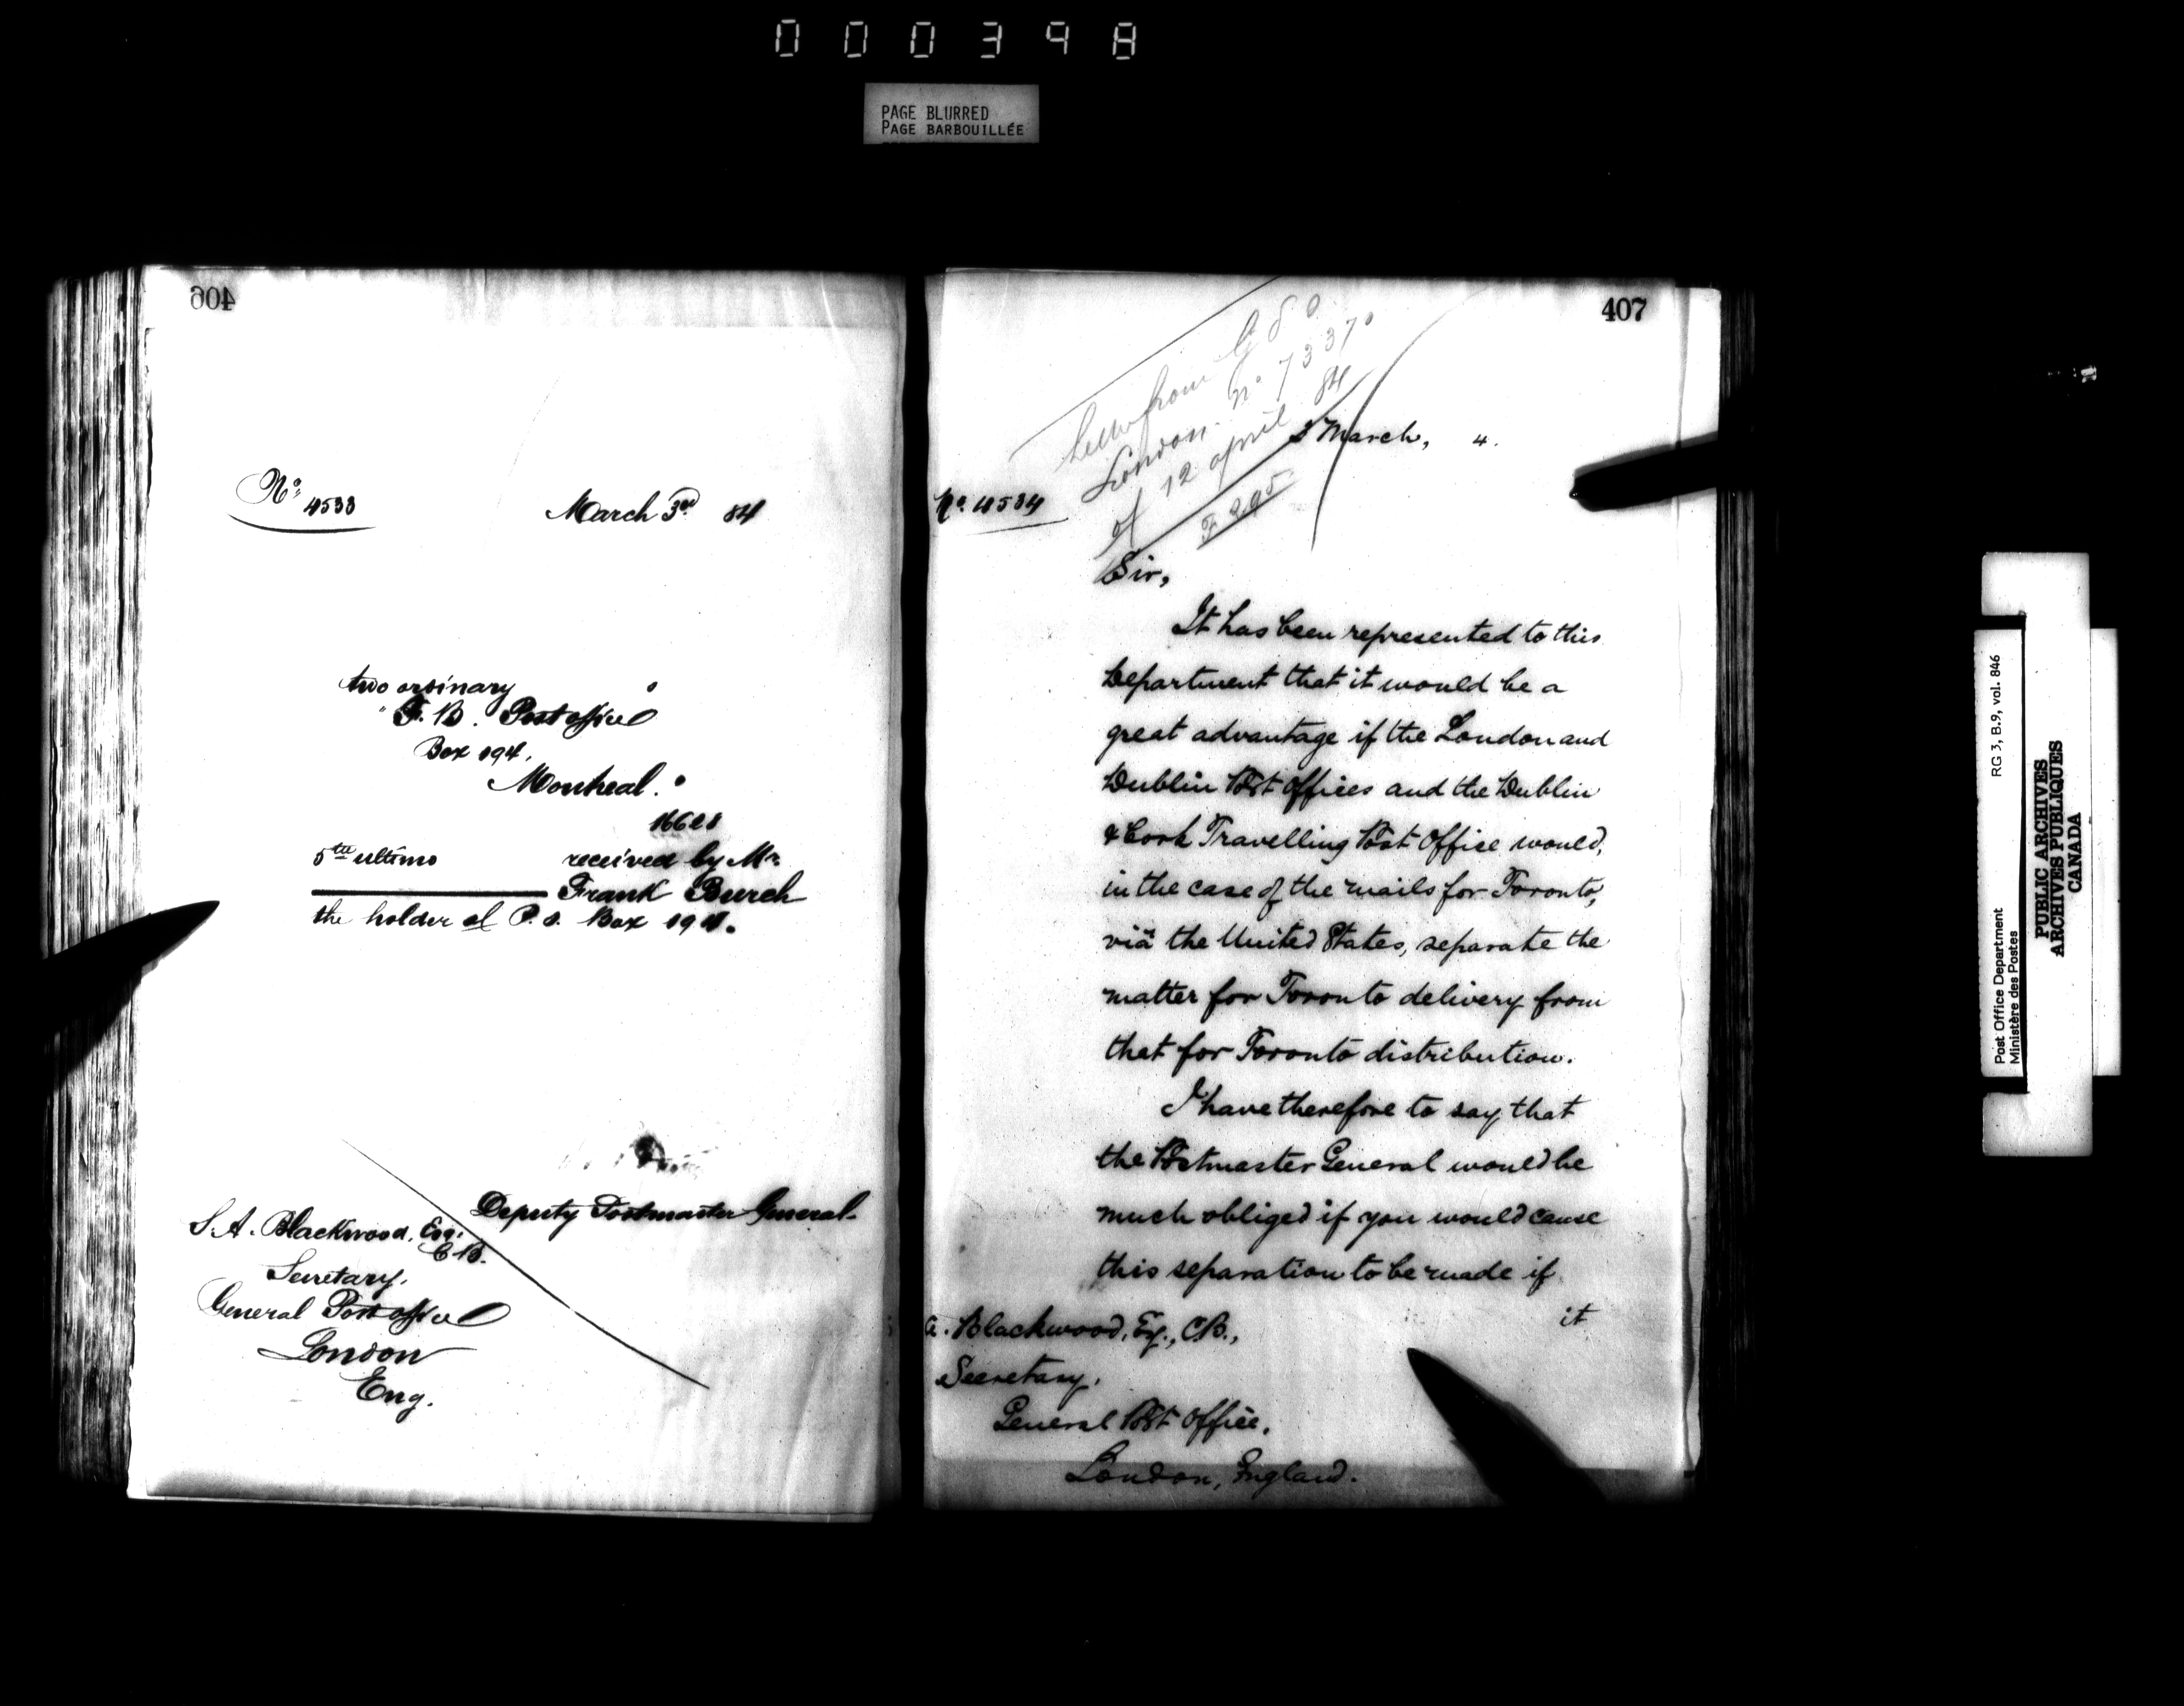 000398
PAGE BLURRED
PAGE BARBOUILLÉE
406
No. 4533
March 3rd 84
two ordinary
"F. B. Post office
Box 194,
Montreal."
5th ultimo received by Mr.
Frank Burch
the holder of P. O. Box 194.
Deputy Postmaster General.
S. A. Blackwood, Esq.
C.B.
Secretary,
General Post office
London
Eng.
407
Letter from G P O
London. No 73370
of 12 april 84
F 295
3 March, 4.
No. 4534
Sir,
It has been represented to this
Department that it would be a
great advantage if the London and
Dublin Post Offices and the Dublin
& Cork Travelling Post Office would,
in the case of the mails for Toronto,
viâ the United States, separate the
matter for Toronto delivery from
that for Toronto distribution.
I have therefore to say that
the Postmaster General would be
much obliged if you would cause
this separation to be made if
it
a. Blackwood, Esq., C.B.,
Secretary,
General Post Office,
London, England.
Post Office Department RG 3, B.9, vol. 846
Ministère des Postes
PUBLIC ARCHIVES
ARCHIVES PUBLIQUES
CANADA